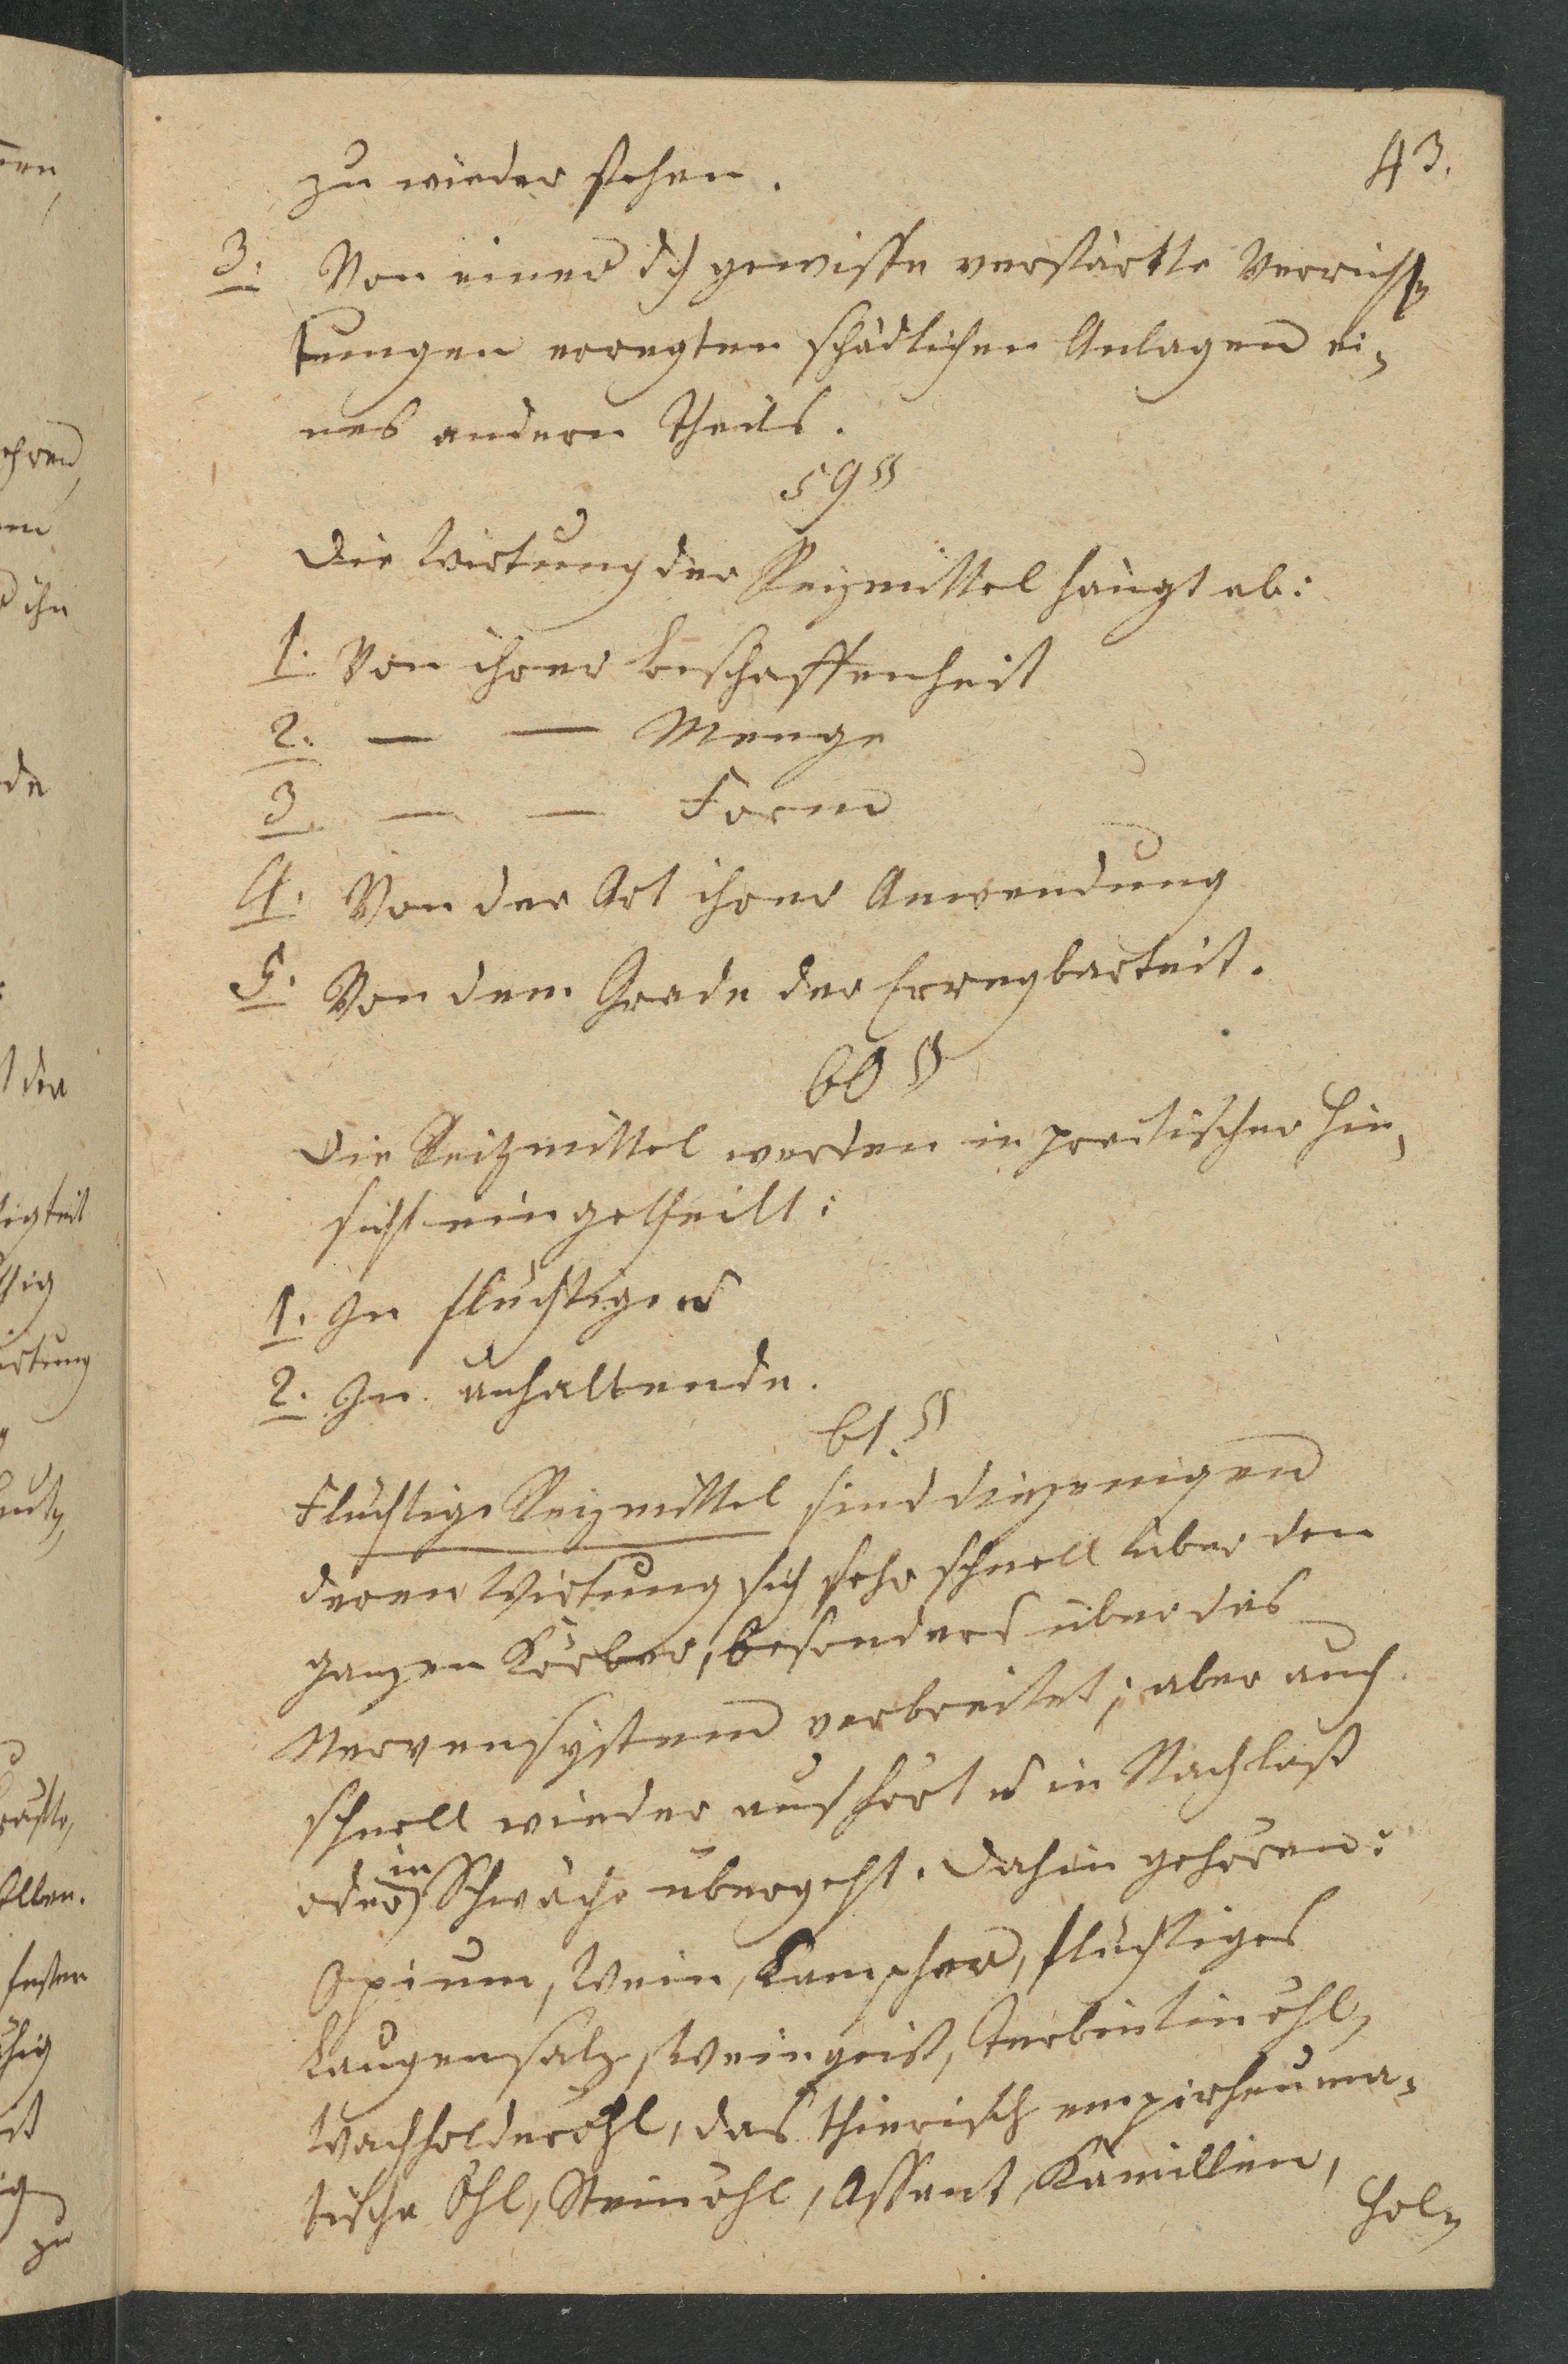 43.
zu wieder stehen.
3. Von einer dch gewisse verstärkte Verrich¬
tungen erregten schädlichen Anlagen ei¬
nes andern Theils.
59 §
Die Wirkung der Reizmittel hängt ab:
1. Von ihrer beschaffenheit
2. — — Menge
3. — — Form
4. Von der Art ihrer Anwendung
5. Von dem Grade der Erregbarkeit.
60 §
Die Reitzmittel werden in practischer Hin¬
sicht eingetheilt:
1. In flüchtige u
2. In anhaltende.
61. §
Flüchtige Reizmittel sind diejenigen
deren Wirkung sich sehr schnell über den
ganzen Körber, besonders über das
Nervensystem verbreitet; aber auch
schnell wieder aufhört u in Nachlaß
oder in Schwäche übergeht. Dahin gehören:
Opium, Wein, Kampher, flüchtiges
Laugensalz, Weingeist, Terbentinöhl,
Wachholderöhl, das thierisch empirheuma¬
tische Öhl, Steinöhl, Assant, Kamillen,
Hol¬